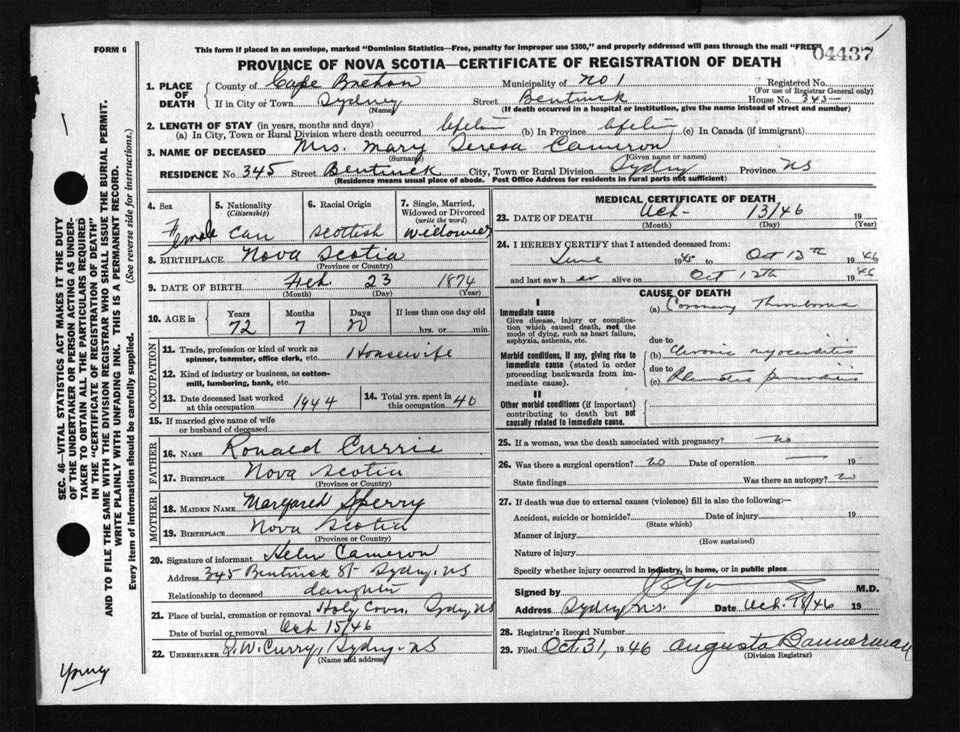 FORM 6
This form if placed in an envelope, marked "Dominion Statistics—Free, penalty for improper use $300," and properly addressed will pass through the mail "FREE"
04437
PROVINCE OF NOVA SCOTIA—CERTIFICATE OF REGISTRATION OF DEATH
1. PLACE OF DEATH
County of Cape Breton Municipality of No 1 Registered No.
(For use of Registrar General only)
If in City or Town Sydney Street Bentinck House No. 345
(Name) (If death occurred in a hospital or institution, give the name instead of street and number)
2. LENGTH OF STAY (in years, months and days)
(a) In City, Town or Rural Division where death occurred lifetime (b) In Province lifetime (c) In Canada (if immigrant)
3. NAME OF DECEASED Mrs. Mary Teresa Cameron
(Surname) (Given name or names)
RESIDENCE No. 345 Street Bentinck City, Town or Rural Division Sydney Province NS
(Residence means usual place of abode. Post Office Address for residents in rural parts not sufficient)
4. Sex 5. Nationality (Citizenship) 6. Racial Origin 7. Single, Married, Widowed or Divorced (write the word)
Female Can Scottish Widowed
8. BIRTHPLACE Nova Scotia
(Province or Country)
9. DATE OF BIRTH Feb 23 1874
(Month) (Day) (Year)
10. AGE in Years Months Days If less than one day old
72 7 20 hrs. or min.
OCCUPATION
11. Trade, profession or kind of work as spinner, teamster, office clerk, etc. Housewife
12. Kind of industry or business, as cotton-mill, lumbering, bank, etc.
13. Date deceased last worked at this occupation 1944 14. Total yrs. spent in this occupation 40
15. If married give name of wife or husband of deceased
FATHER
16. NAME Ronald Currie
17. BIRTHPLACE Nova Scotia
(Province or Country)
MOTHER
18. MAIDEN NAME Margaret Sperry
19. BIRTHPLACE Nova Scotia
(Province or Country)
20. Signature of informant Helen Cameron
Address 345 Bentinck St- Sydney, NS
Relationship to deceased daughter
21. Place of burial, cremation or removal Holy Cross, Sydney NS
Date of burial or removal Oct 15/46
22. UNDERTAKER J. W. Curry, Sydney- NS
(Name and address)
MEDICAL CERTIFICATE OF DEATH
23. DATE OF DEATH Oct- 13/46 19
(Month) (Day) (Year)
24. I HEREBY CERTIFY that I attended deceased from:
June 1945 to Oct 12th 1946
and last saw her alive on Oct 12th 1946
CAUSE OF DEATH
I
Immediate cause
Give disease, injury or complication which caused death, not the mode of dying, such as heart failure, asphyxia, asthenia, etc.
(a) Coronary Thrombosis
due to
Morbid conditions, if any, giving rise to immediate cause (stated in order proceeding backwards from immediate cause).
(b) Chronic myocarditis
due to
(c)
II
Other morbid conditions (if important) contributing to death but not causally related to immediate cause.
25. If a woman, was the death associated with pregnancy? no
26. Was there a surgical operation? no Date of operation — 19
State findings Was there an autopsy? no
27. If death was due to external causes (violence) fill in also the following:—
Accident, suicide or homicide? Date of injury 19
(State which)
Manner of injury
(How sustained)
Nature of injury
Specify whether injury occurred in industry, in home, or in public place
Signed by M.D.
Address Sydney N.S. Date Oct. /46 19
28. Registrar's Record Number
29. Filed Oct. 31, 1946 Augusta Bannerman
(Division Registrar)
SEC. 46—VITAL STATISTICS ACT MAKES IT THE DUTY
OF THE UNDERTAKER OR PERSON ACTING AS UNDER-
TAKER TO OBTAIN ALL THE PARTICULARS REQUIRED
IN THE "CERTIFICATE OF REGISTRATION OF DEATH"
AND TO FILE THE SAME WITH THE DIVISION REGISTRAR WHO SHALL ISSUE THE BURIAL PERMIT.
WRITE PLAINLY WITH UNFADING INK. THIS IS A PERMANENT RECORD.
Every item of information should be carefully supplied. (See reverse side for instructions.)
Young